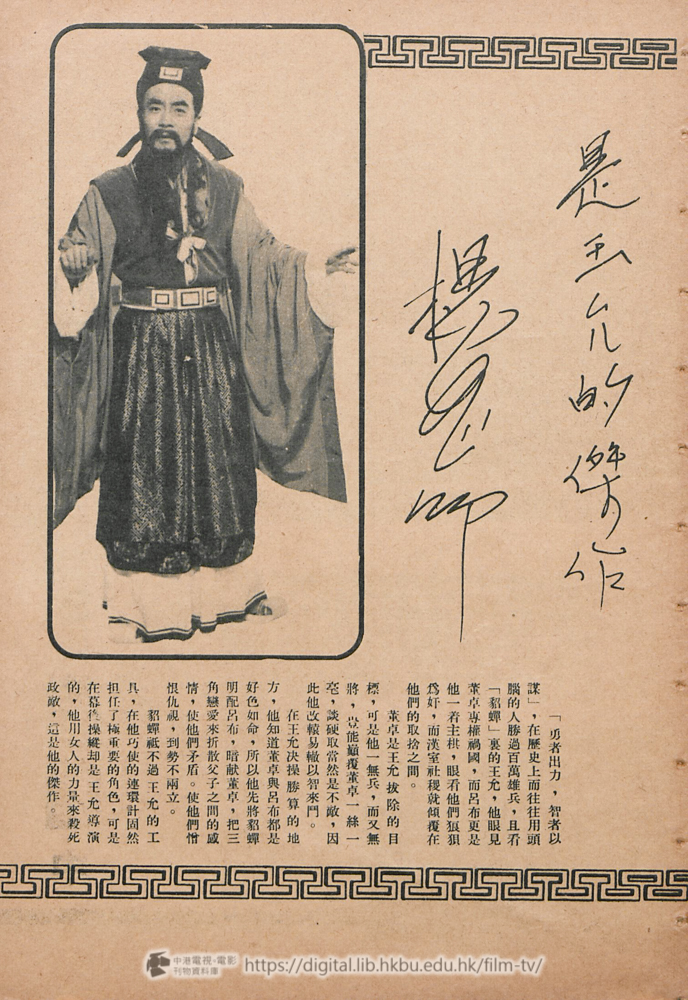 是王允的傑作
楊志卿
「勇者出力，智者以
謀」，在歷史上而往往用頭
腦的人勝過百萬雄兵，且看
「貂蟬」裏的王允，他眼見
董卓專權禍國，而呂布更是
他一着主棋，眼看他們狼狽
爲奸，而漢室社稷就傾覆在
他們的取捨之間。
董卓是王允拔除的目
標，可是他一無兵，而又無
將，豈能顚覆董卓一絲一
毫，談硬取當然是不敵，因
此他改轅易轍以智來鬥。
在王允決操勝算的地
方，他知道董卓與呂布都是
好色如命，所以他先將貂蟬
明配呂布，暗献董卓，把三
角戀愛來折散父子之間的感
情，使他們矛盾。使他們憎
恨仇視，到勢不兩立。
貂蟬祇不過王允的工
具，在他巧使的連環計固然
担任了極重要的角色，可是
在幕後操縱却是王允導演
的，他用女人的力量來殺死
政敵，這是他的傑作。
中港電視・電影
刊物資料庫
https://digital.lib.hkbu.edu.hk/film-tv/